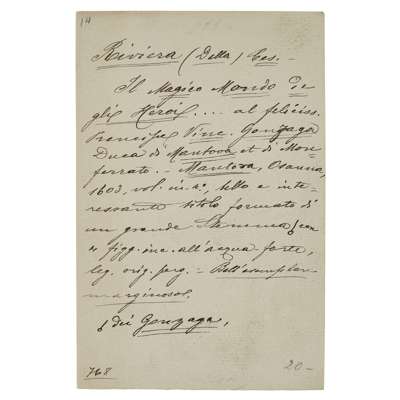 14
Riviera (Della) Ces.-
Il Magico Mondo de
gli Heroi.... al feliciss.
Principe Vinc. Gonzaga
Duca di Mantova et di Mon-
ferrato. - Mantova, Osanna,
1603, vol. in 4°, bello e inte-
ressante titolo formato d'
un grande Stemma con
4 figg. inc. all'acqua-forte,
leg. orig. perg. = Bell'esemplar
marginoso.
dei Gonzaga,
768
20-